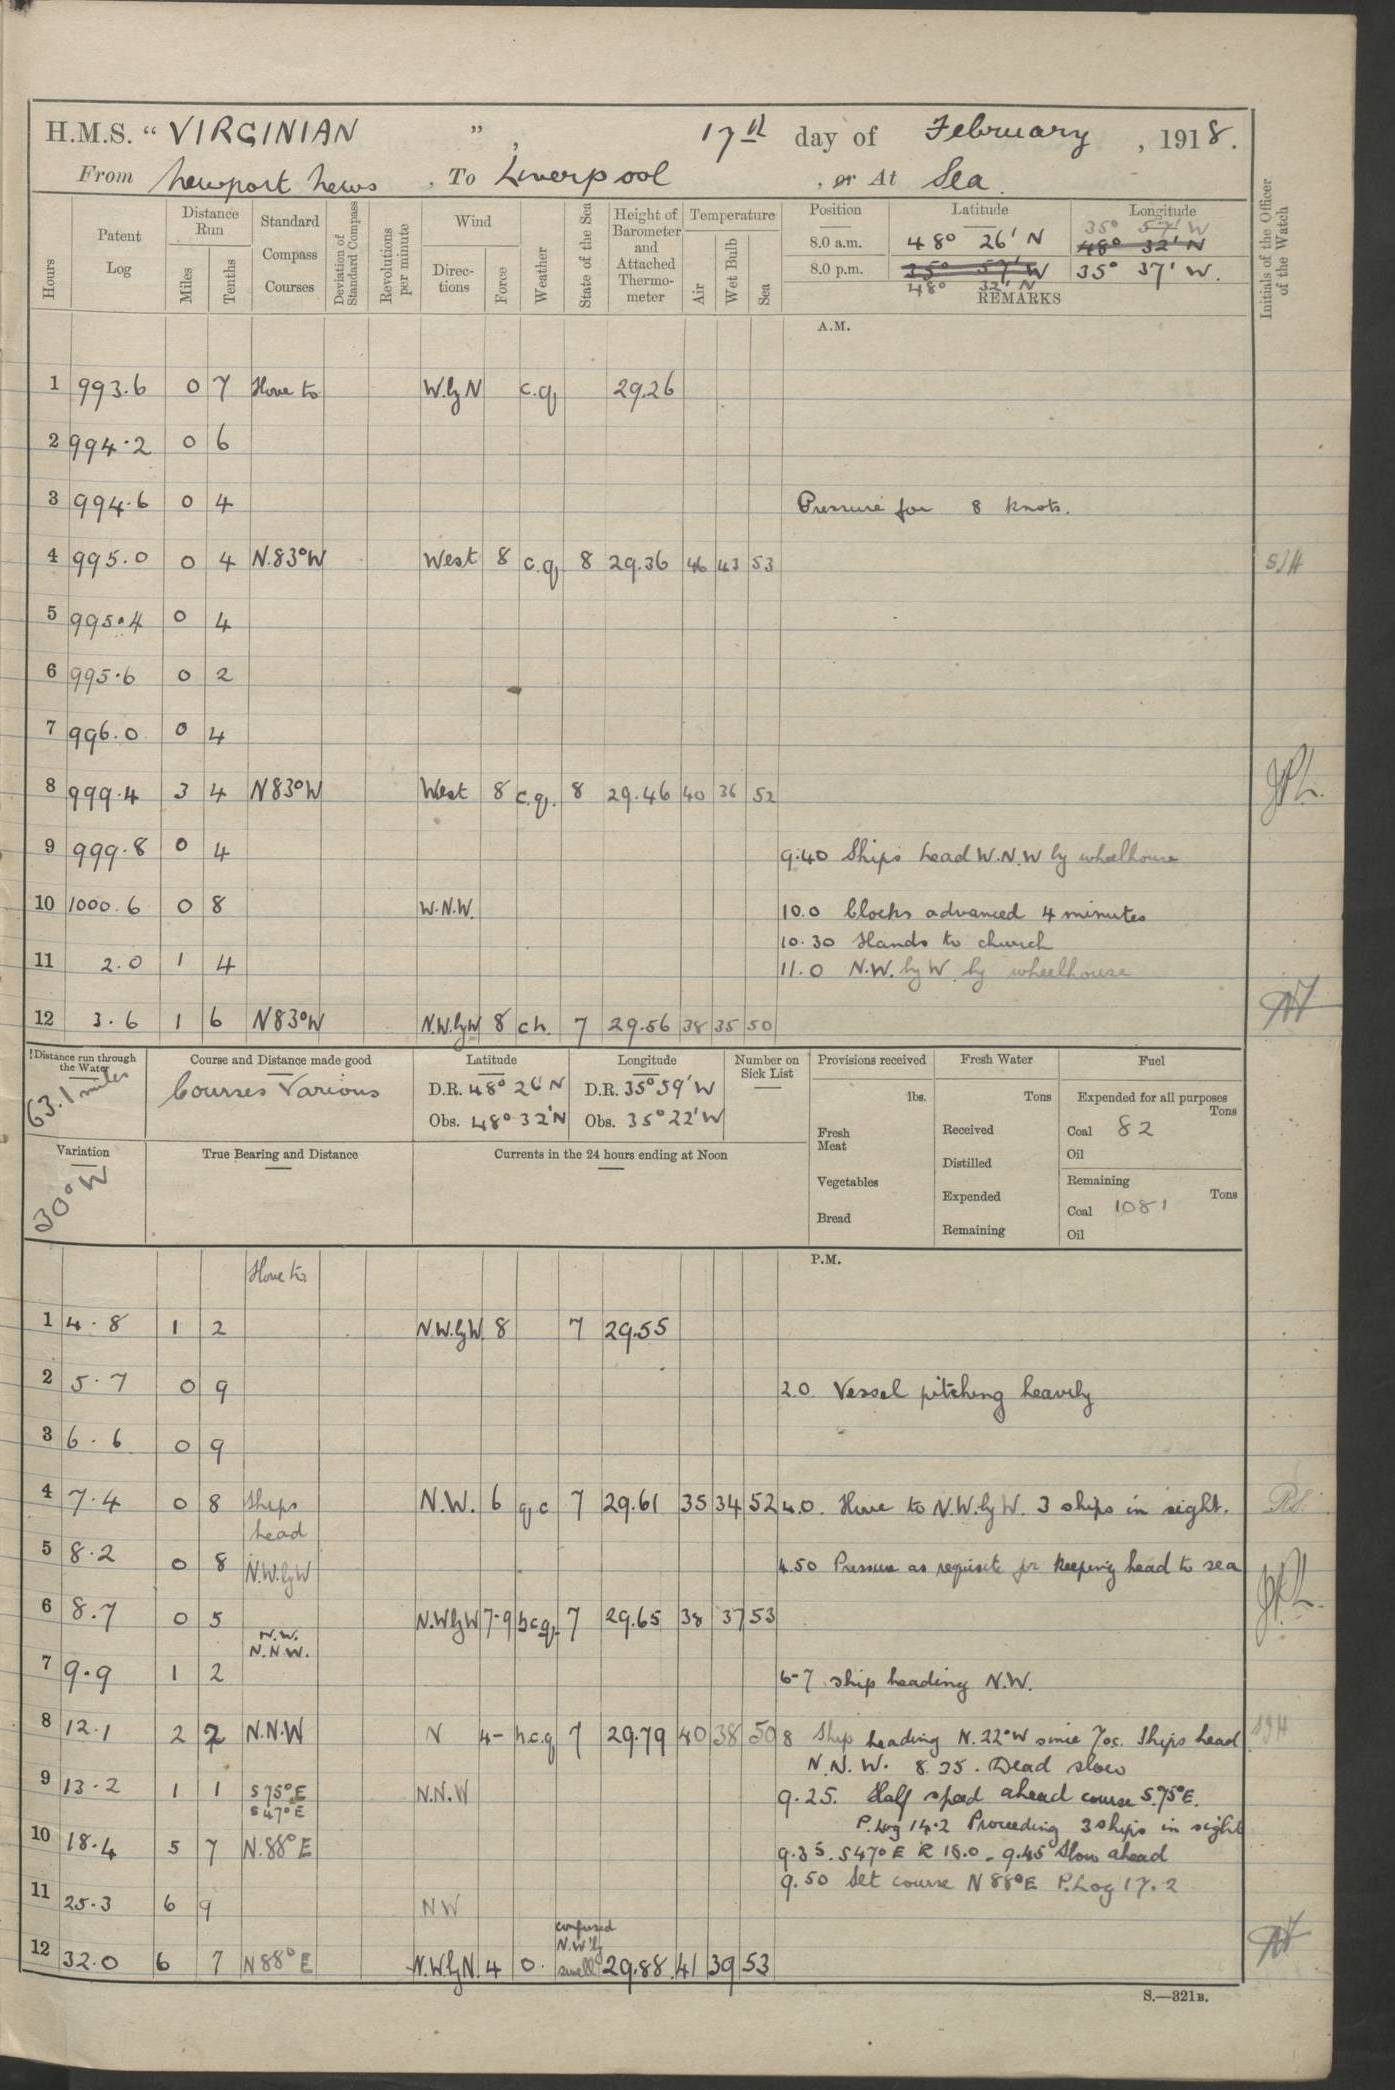 H.M.S. “ VIRGINIAN ” , 17th day of February , 1918.
From Newport News , To Liverpool , or At Sea.
Hours
Patent Log
Distance Run
Miles
Tenths
Standard Compass Courses
Deviation of Standard Compass
Revolutions per minute
Wind
Directions
Force
Weather
State of the Sea
Height of Barometer and Attached Thermometer
Temperature
Air
Wet Bulb
Sea
Position Latitude Longitude
35° 57' W
8.0 a.m. 48° 26' N 48° 32' N
8.0 p.m. 35° 57' W 35° 37' W.
48° 32' N
REMARKS
Initials of the Officer of the Watch
A.M.
1 993.6 0 7 Hove to W.byN c.q. 29.26
2 994.2 0 6
3 994.6 0 4 Pressure for 8 knots.
4 995.0 0 4 N.83°W West 8 c.q. 8 29.36 46 43 53 SJH
5 995.4 0 4
6 995.6 0 2
7 996.0 0 4
8 999.4 3 4 N83°W West 8 c.q. 8 29.46 40 36 52
9 999.8 0 4 9.40 Ships head W.N.W by wheelhouse
10 1000.6 0 8 W.N.W. 10.0 Clocks advanced 4 minutes
10.30 Hands to church
11 2.0 1 4 11.0 N.W. by W by wheelhouse
12 3.6 1 6 N83°W N.W.byW 8 ch. 7 29.56 38 35 50
Distance run through the Water
63.1 miles
Course and Distance made good
Courses Various
Latitude
D.R. 48° 26' N
Obs. 48° 32' N
Longitude
D.R. 35° 59' W
Obs. 35° 22' W
Number on Sick List
Provisions received
lbs.
Fresh Meat
Vegetables
Bread
Fresh Water
Tons
Received
Distilled
Expended
Remaining
Fuel
Expended for all purposes
Tons
Coal 82
Oil
Remaining
Tons
Coal 1081
Oil
Variation
30° W
True Bearing and Distance
Currents in the 24 hours ending at Noon
P.M.
Hove to
1 4.8 1 2 N.W.byW 8 7 29.55
2 5.7 0 9 2.0. Vessel pitching heavily
3 6.6 0 9
4 7.4 0 8 Ships N.W. 6 q c 7 29.61 35 34 52 4.0. Hove to N.W.byW. 3 ships in sight.
head
5 8.2 0 8 N.W.byW 4.50 Pressure as requisite for keeping head to sea
6 8.7 0 5 N.WbyW 7-9 b.c.q. 7 29.65 38 37 53
N.W.
N.N.W.
7 9.9 1 2 6-7 ship heading N.W.
8 12.1 2 2 N.N.W N 4- b.c.q 7 29.79 40 38 50 8 Ship heading N.22°W since 7.05. Ships head
N.N.W. 8.35. Dead slow
9 13.2 1 1 S75°E N.N.W 9.25. Half speed ahead course S.75°E.
S47°E P.Log 14.2 Proceeding 3 ships in sight
10 18.4 5 7 N.88°E 9.35. S47°E 9.45 Slow ahead
9.50 Set course N88°E P.Log 17.2
11 25.3 6 9 NW
confused
N.W'ly
12 32.0 6 7 N88°E N.WbyN. 4 o. swell 29.88 41 39 53
S.—321B.